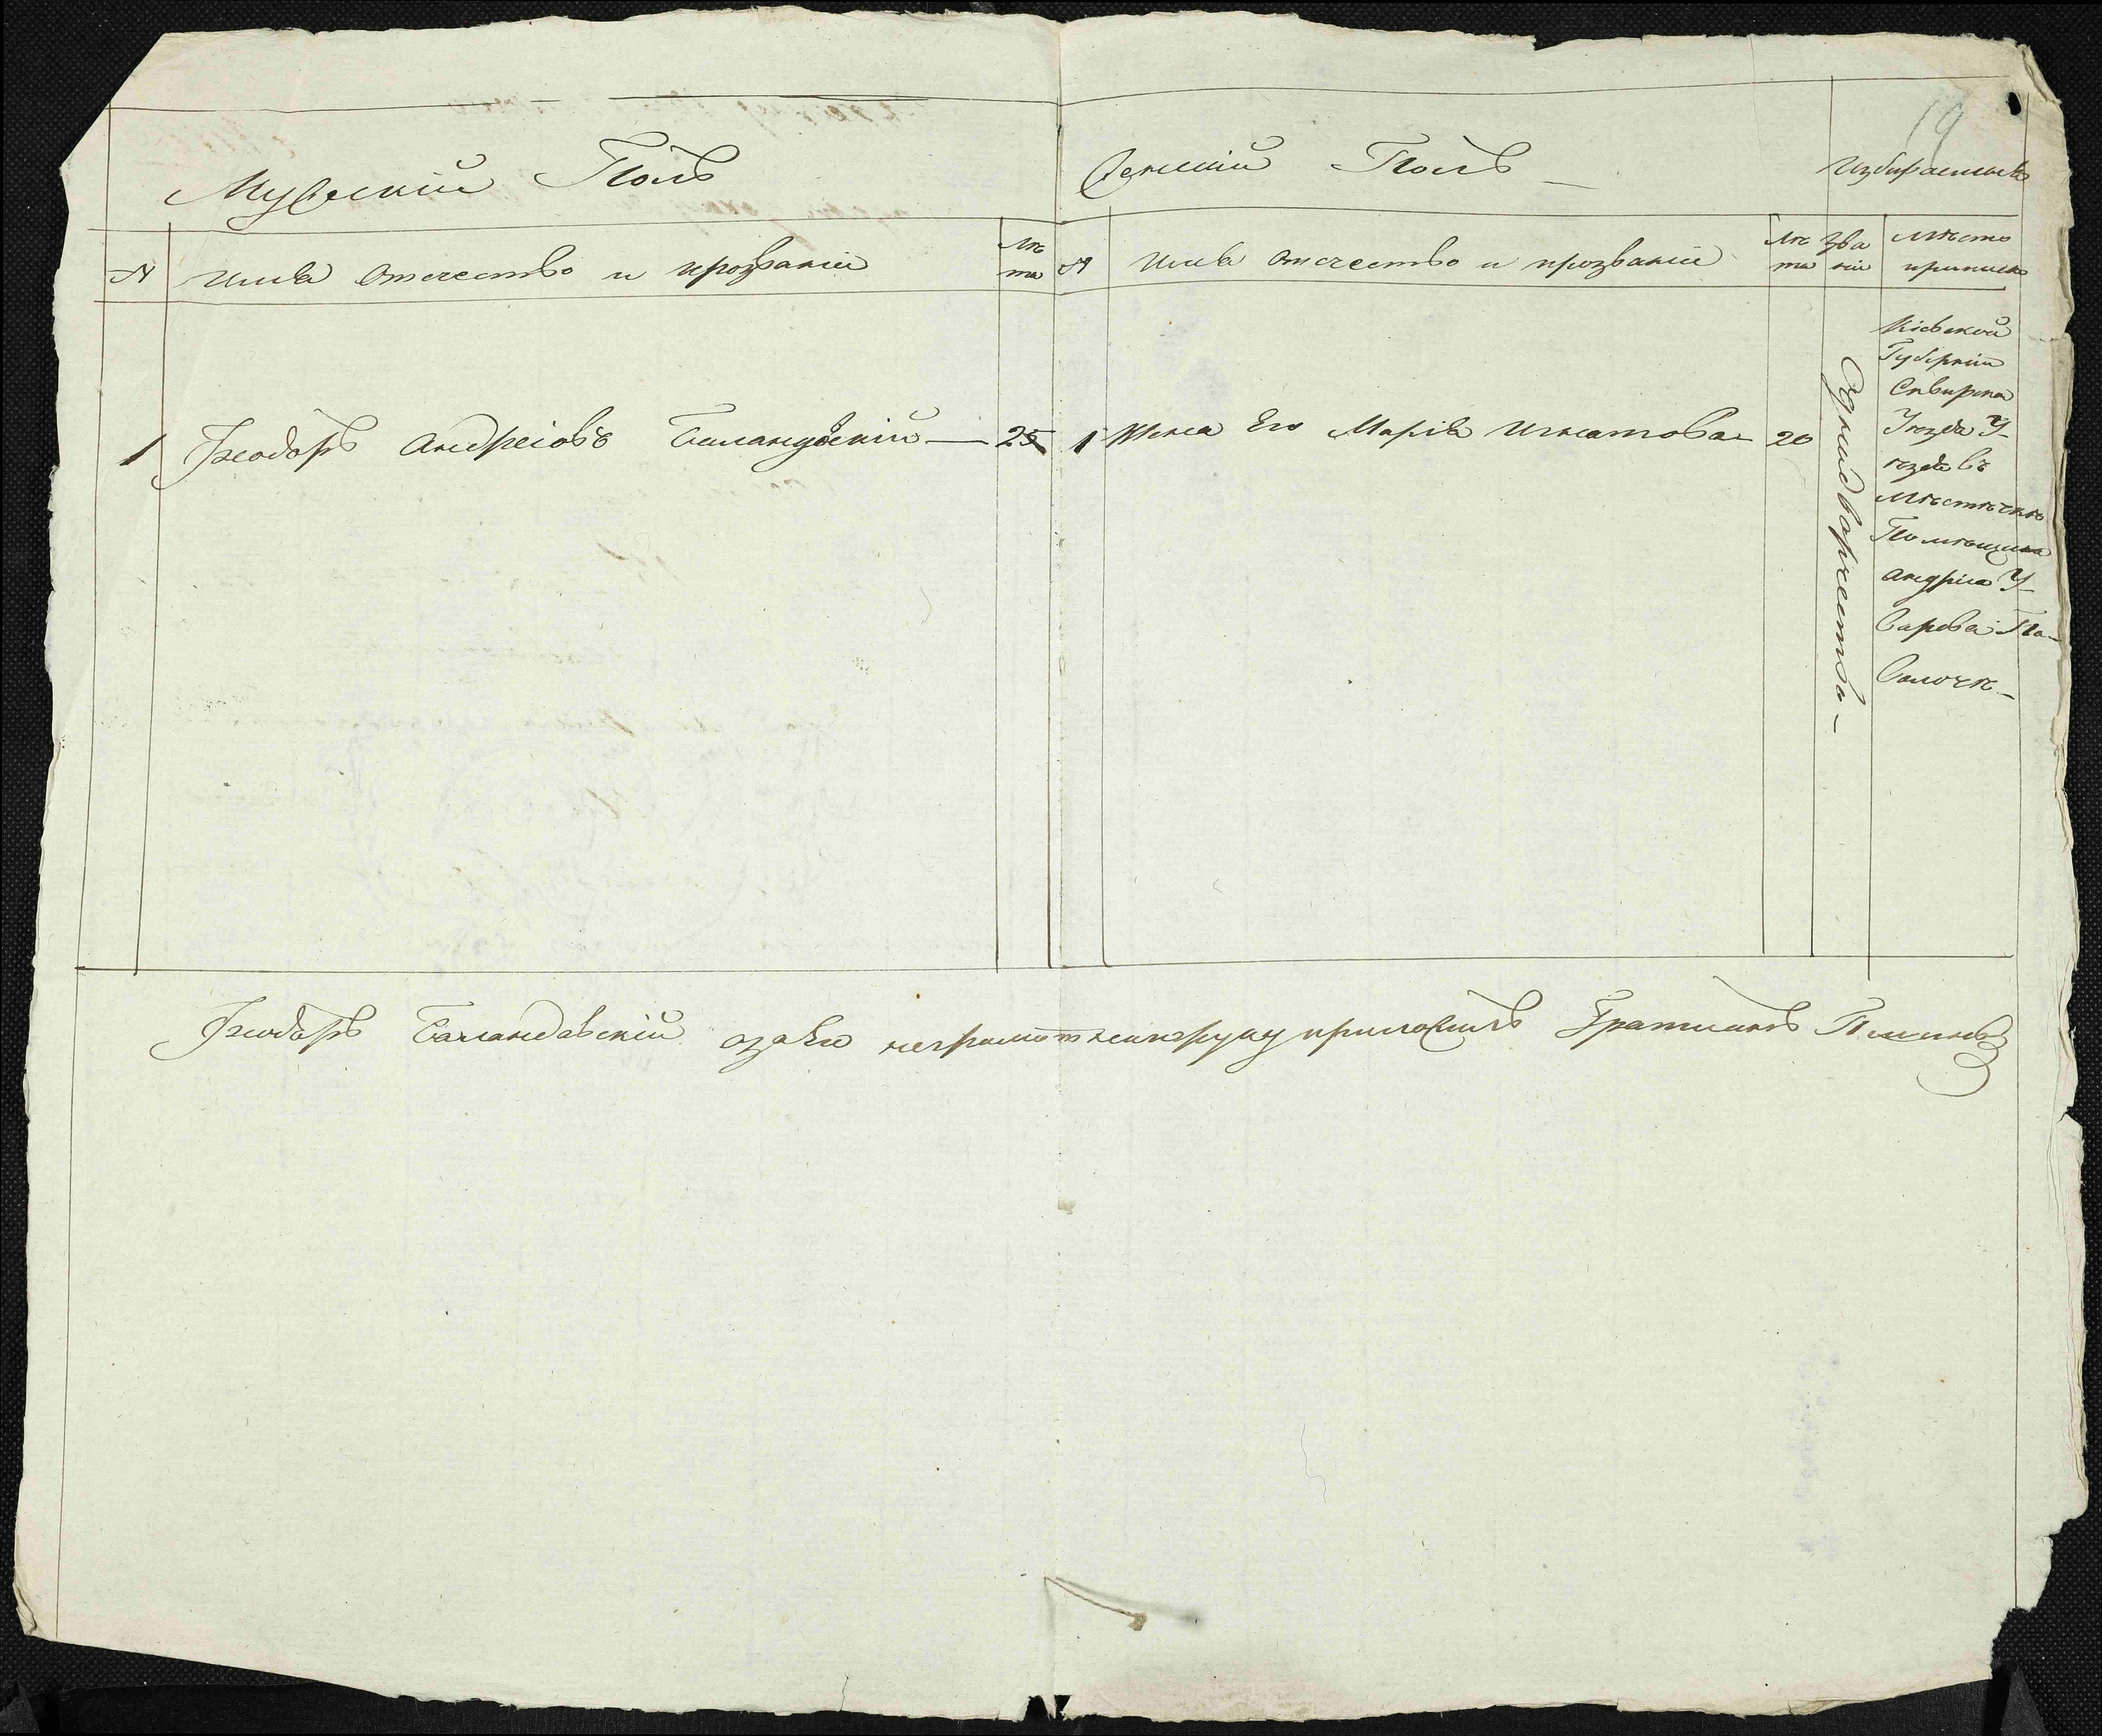 19
Мужескій Полъ
Женскій Полъ
Избираемыя
№ Имя Отечество и прозваніи Лѣ та
№ Имя Отечество и прозваніи Лѣ та
Зва ніи
Мѣсто приписк
1 Ѳеодоръ Андреіовъ Баландовскій — 25
1 Жена Его Марія Игнатова 20
Однодворчество
Кіевской
Губерніи
Сквирка
Уѣзда У-
ѣзда въ
Мѣстѣчкѣ
Помѣщика
Андрія У-
варова Па-
волочѣ
Ѳеодоръ Баландовскій азаЕго неграмотненіируку приложилъ